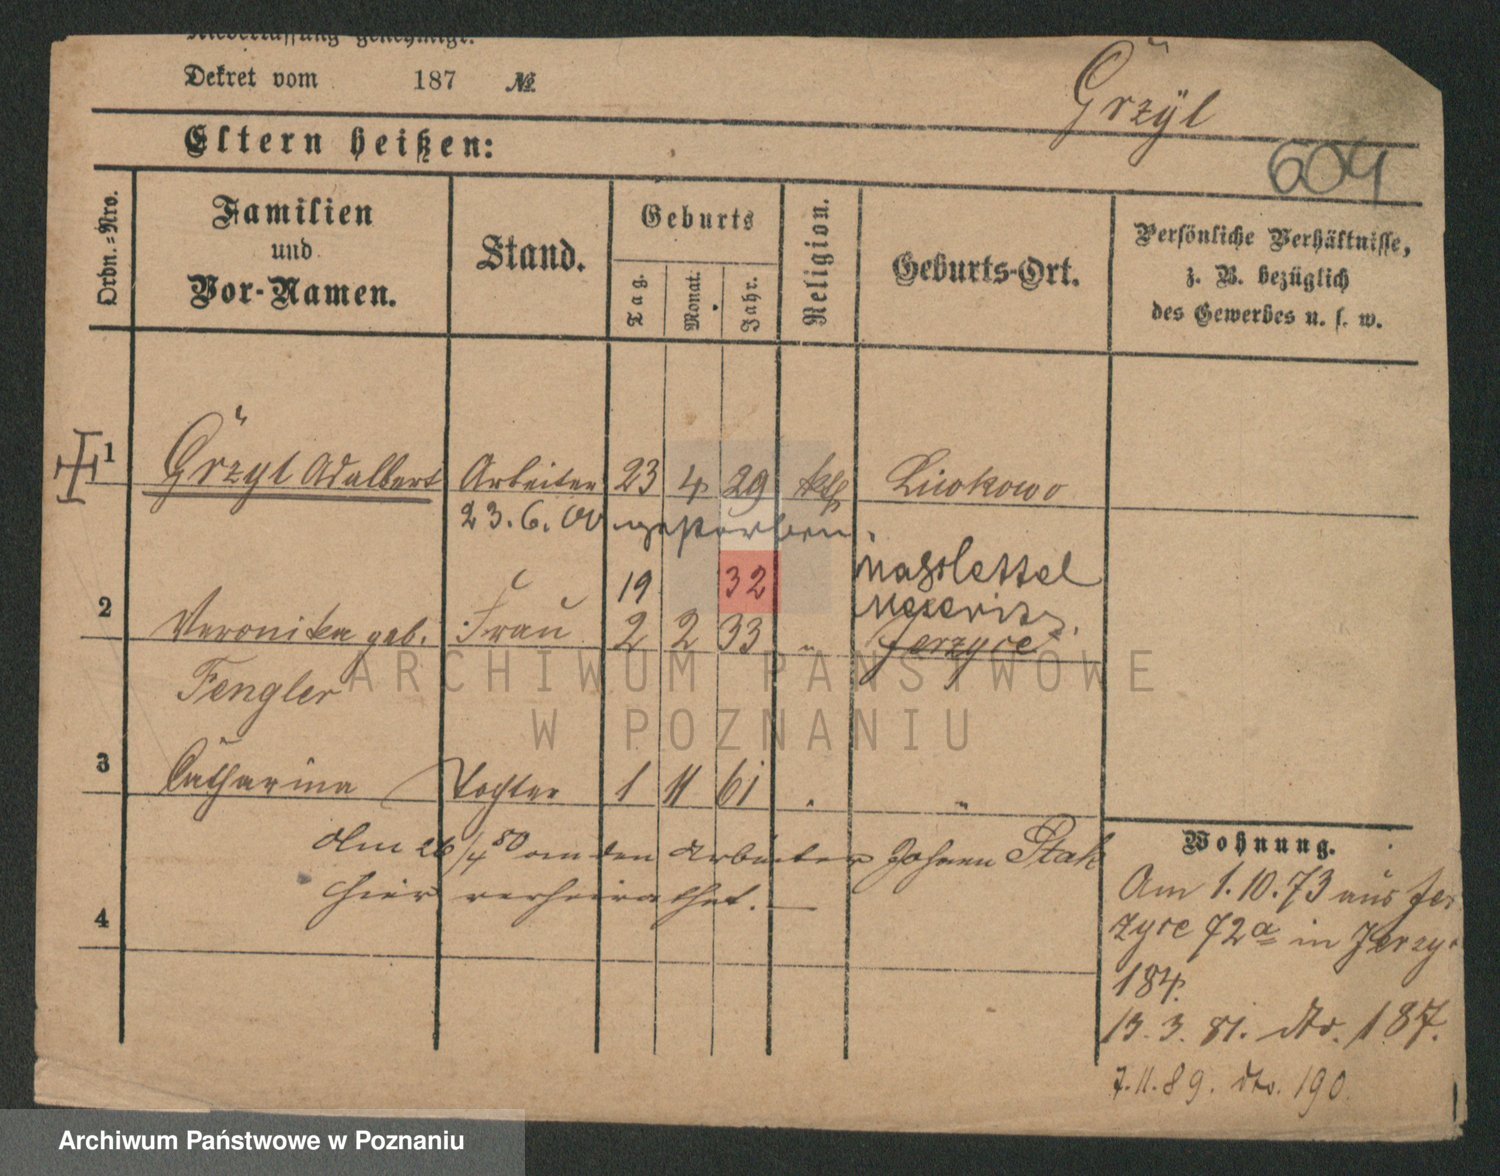 Niederlassung genehmigt.
Dekret vom 187 №
Grzÿl
604
Eltern heißen:
Ordn.-Nro.
Familien und Vor-Namen.
Stand.
Geburts
Tag.
Monat.
Jahr.
Religion.
Geburts-Ort.
Persönliche Verhältnisse,
z. B. bezüglich
des Gewerbes u. s. w.
1 Grzyl Adalbert Arbeiter 23 4 29 kth
23.6.00 gestorben.
19 32
2 Veronika geb. Frau 2 2 33 " Jerzyce
Fengler
3 Catharina Tochter 1 11 61 " "
Am 26/4 80 an den Arbeiter Johann Ptak
hier verheirathet. —
4
Wohnung.
Am 1.10.73 aus Jer
zyce 72a in Jerzy
184.
13.3.81. dto. 187.
7.11.89. dto. 190.
ARCHIWUM PAŃSTWOWE
W POZNANIU
Archiwum Państwowe w Poznaniu